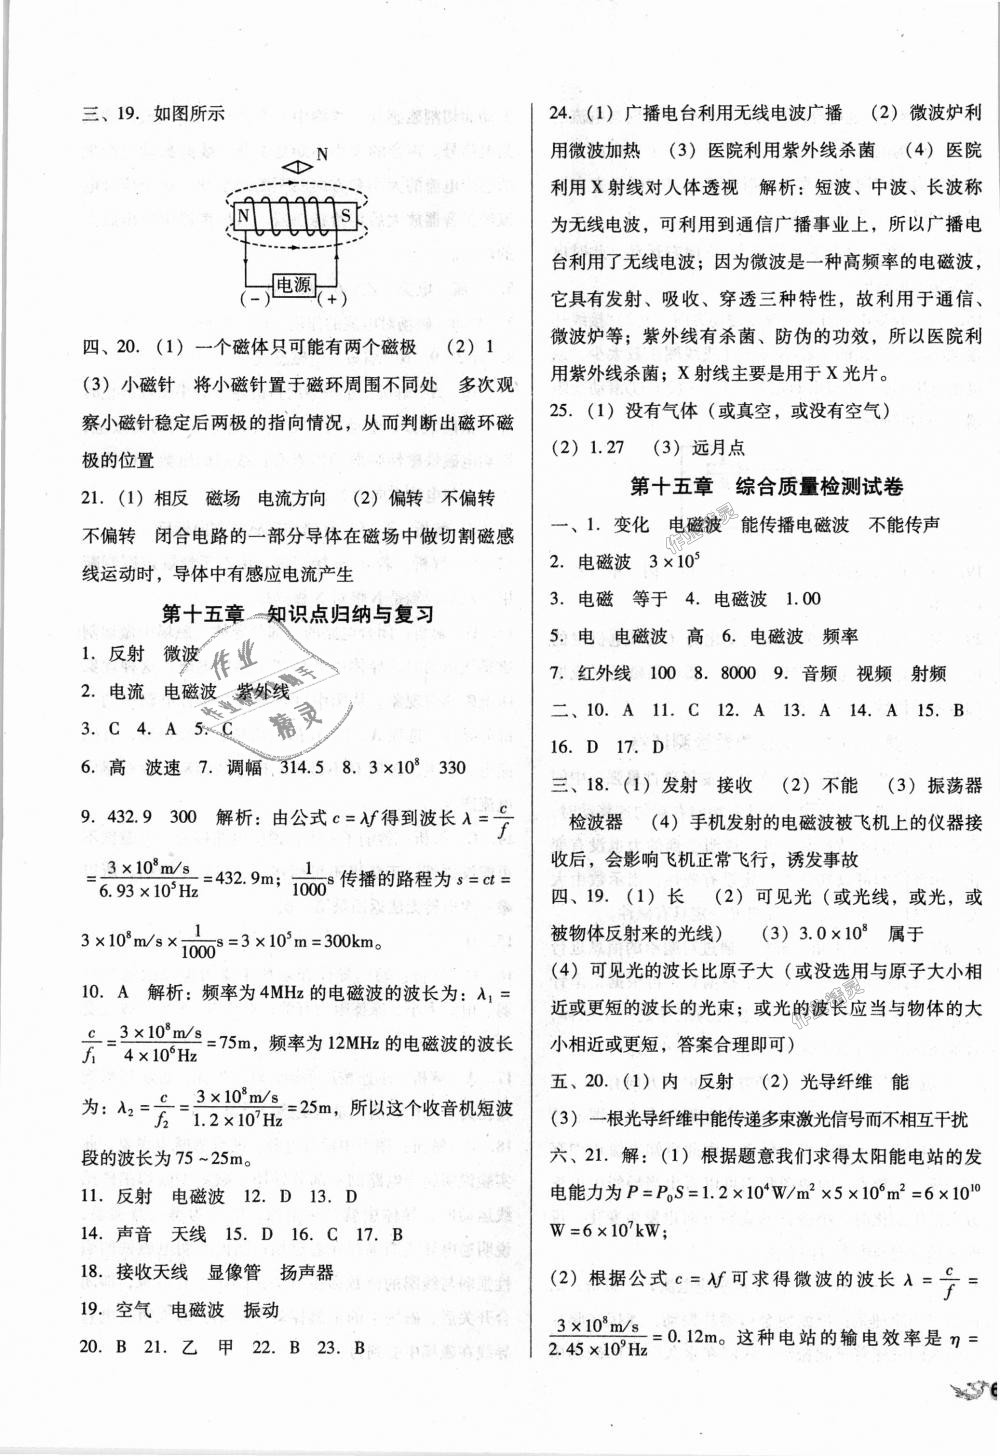 三、19. 如图所示
N
N S
电源
(−) (+)
四、20. (1) 一个磁体只可能有两个磁极 (2) 1
(3) 小磁针 将小磁针置于磁环周围不同处 多次观
察小磁针稳定后两极的指向情况，从而判断出磁环磁
极的位置
21. (1) 相反 磁场 电流方向 (2) 偏转 不偏转
不偏转 闭合电路的一部分导体在磁场中做切割磁感
线运动时，导体中有感应电流产生
第十五章 知识点归纳与复习
1. 反射 微波
2. 电流 电磁波 紫外线
3. C 4. A 5. C
6. 高 波速 7. 调幅 314.5 8. 3×10⁸ 330
9. 432.9 300 解析：由公式 c=λf 得到波长 λ=c/f
=3×10⁸m/s/6.93×10⁵Hz=432.9m；1/1000 s 传播的路程为 s=ct=
3×10⁸m/s×1/1000 s=3×10⁵m=300km。
10. A 解析：频率为 4MHz 的电磁波的波长为：λ₁=
c/f₁=3×10⁸m/s/4×10⁶Hz=75m，频率为 12MHz 的电磁波的波长
为：λ₂=c/f₂=3×10⁸m/s/1.2×10⁷Hz=25m，所以这个收音机短波
段的波长为 75～25m。
11. 反射 电磁波 12. D 13. D
14. 声音 天线 15. D 16. C 17. B
18. 接收天线 显像管 扬声器
19. 空气 电磁波 振动
20. B 21. 乙 甲 22. B 23. B
24. (1) 广播电台利用无线电波广播 (2) 微波炉利
用微波加热 (3) 医院利用紫外线杀菌 (4) 医院
利用 X 射线对人体透视 解析：短波、中波、长波称
为无线电波，可利用到通信广播事业上，所以广播电
台利用了无线电波；因为微波是一种高频率的电磁波，
它具有发射、吸收、穿透三种特性，故利用于通信、
微波炉等；紫外线有杀菌、防伪的功效，所以医院利
用紫外线杀菌；X 射线主要是用于 X 光片。
25. (1) 没有气体（或真空，或没有空气）
(2) 1.27 (3) 远月点
第十五章 综合质量检测试卷
一、1. 变化 电磁波 能传播电磁波 不能传声
2. 电磁波 3×10⁵
3. 电磁 等于 4. 电磁波 1.00
5. 电 电磁波 高 6. 电磁波 频率
7. 红外线 100 8. 8000 9. 音频 视频 射频
二、10. A 11. C 12. A 13. A 14. A 15. B
16. D 17. D
三、18. (1) 发射 接收 (2) 不能 (3) 振荡器
检波器 (4) 手机发射的电磁波被飞机上的仪器接
收后，会影响飞机正常飞行，诱发事故
四、19. (1) 长 (2) 可见光（或光线，或光，或
被物体反射来的光线） (3) 3.0×10⁸ 属于
(4) 可见光的波长比原子大（或没选用与原子大小相
近或更短的波长的光束；或光的波长应当与物体的大
小相近或更短，答案合理即可）
五、20. (1) 内 反射 (2) 光导纤维 能
(3) 一根光导纤维中能传递多束激光信号而不相互干扰
六、21. 解：(1) 根据题意我们求得太阳能电站的发
电能力为 P=P₀S=1.2×10⁴W/m²×5×10⁶m²=6×10¹⁰
W=6×10⁷kW；
(2) 根据公式 c=λf 可求得微波的波长 λ=c/f=
3×10⁸m/s/2.45×10⁹Hz=0.12m。这种电站的输电效率是 η=
作业
作业检查小助手
精灵
作业精灵
作业精灵